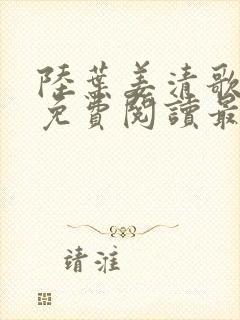 陸葉姜清歌
免費閱讀最
靖淮